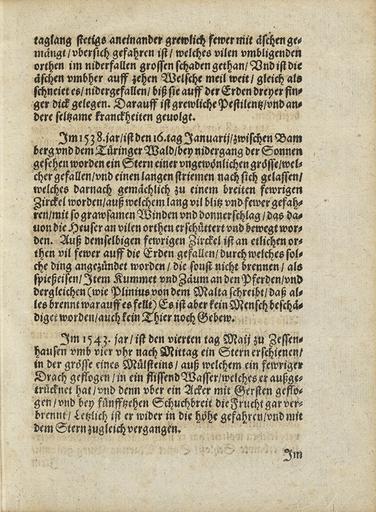 taglang stetigs aneinander grewlich fewer mit äschen ge-
mängt / vbersich gefahren ist / welches vilen vmbligenden
orthen im niderfallen grossen schaden gethan / Vnd ist die
äschen vmbher auff zehen Welsche meil weit / gleich als
schneiet es / nidergefallen / biß sie auff der Erden dreyer fin-
ger dick gelegen. Darauff ist grewliche Pestilentz / vnd an-
dere seltzame kranckheiten geuolgt.
Im 1538. jar / ist den 16. tag Januarij / zwischen Bam
berg vnd dem Türinger Wald / bey nidergang der Sonnen
gesehen worden ein Stern einer vngewönlichen grösse / wel-
cher gefallen / vnd einen langen striemen nach sich gelassen /
welches darnach gemächlich zu einem breiten fewrigen
Zirckel worden / auß welchem lang vil blitz vnd fewer gefah-
ren / mit so grawsamen Winden vnd donnerschlag / das da-
uon die Heuser an vilen orthen erschüttert vnd bewegt wor-
den. Auß demselbigen fewrigen Zirckel ist an etlichen or-
then vil fewer auff die Erden gefallen / durch welches sol-
che ding angezündet worden / die sonst nicht brennen / als
spießeisen / Item Kummet vnd Zäum an den Pferden / vnd
dergleichen (wie Plinius von dem Malta schreibt / daß al-
les brennt warauff es fellt) Es ist aber kein Mensch beschä-
diget worden / auch kein Thier noch Gebew.
Im 1543. jar / ist den vierten tag Maij zu Zessen-
hausen vmb vier vhr nach Mittag ein Stern erschienen /
in der grösse eines Mülsteins / auß welchem ein fewriger
Drach geflogen / in ein fliessend Wasser / welches er außge-
trücknet hat / vnd denn vber ein Acker mit Gersten geflo-
gen / vnd bey fünfftzehen Schuchbreit die Frucht gar ver-
brennt / Letzlich ist er wider in die höhe gefahren / vnd mit
dem Stern zugleich vergangen.
Im